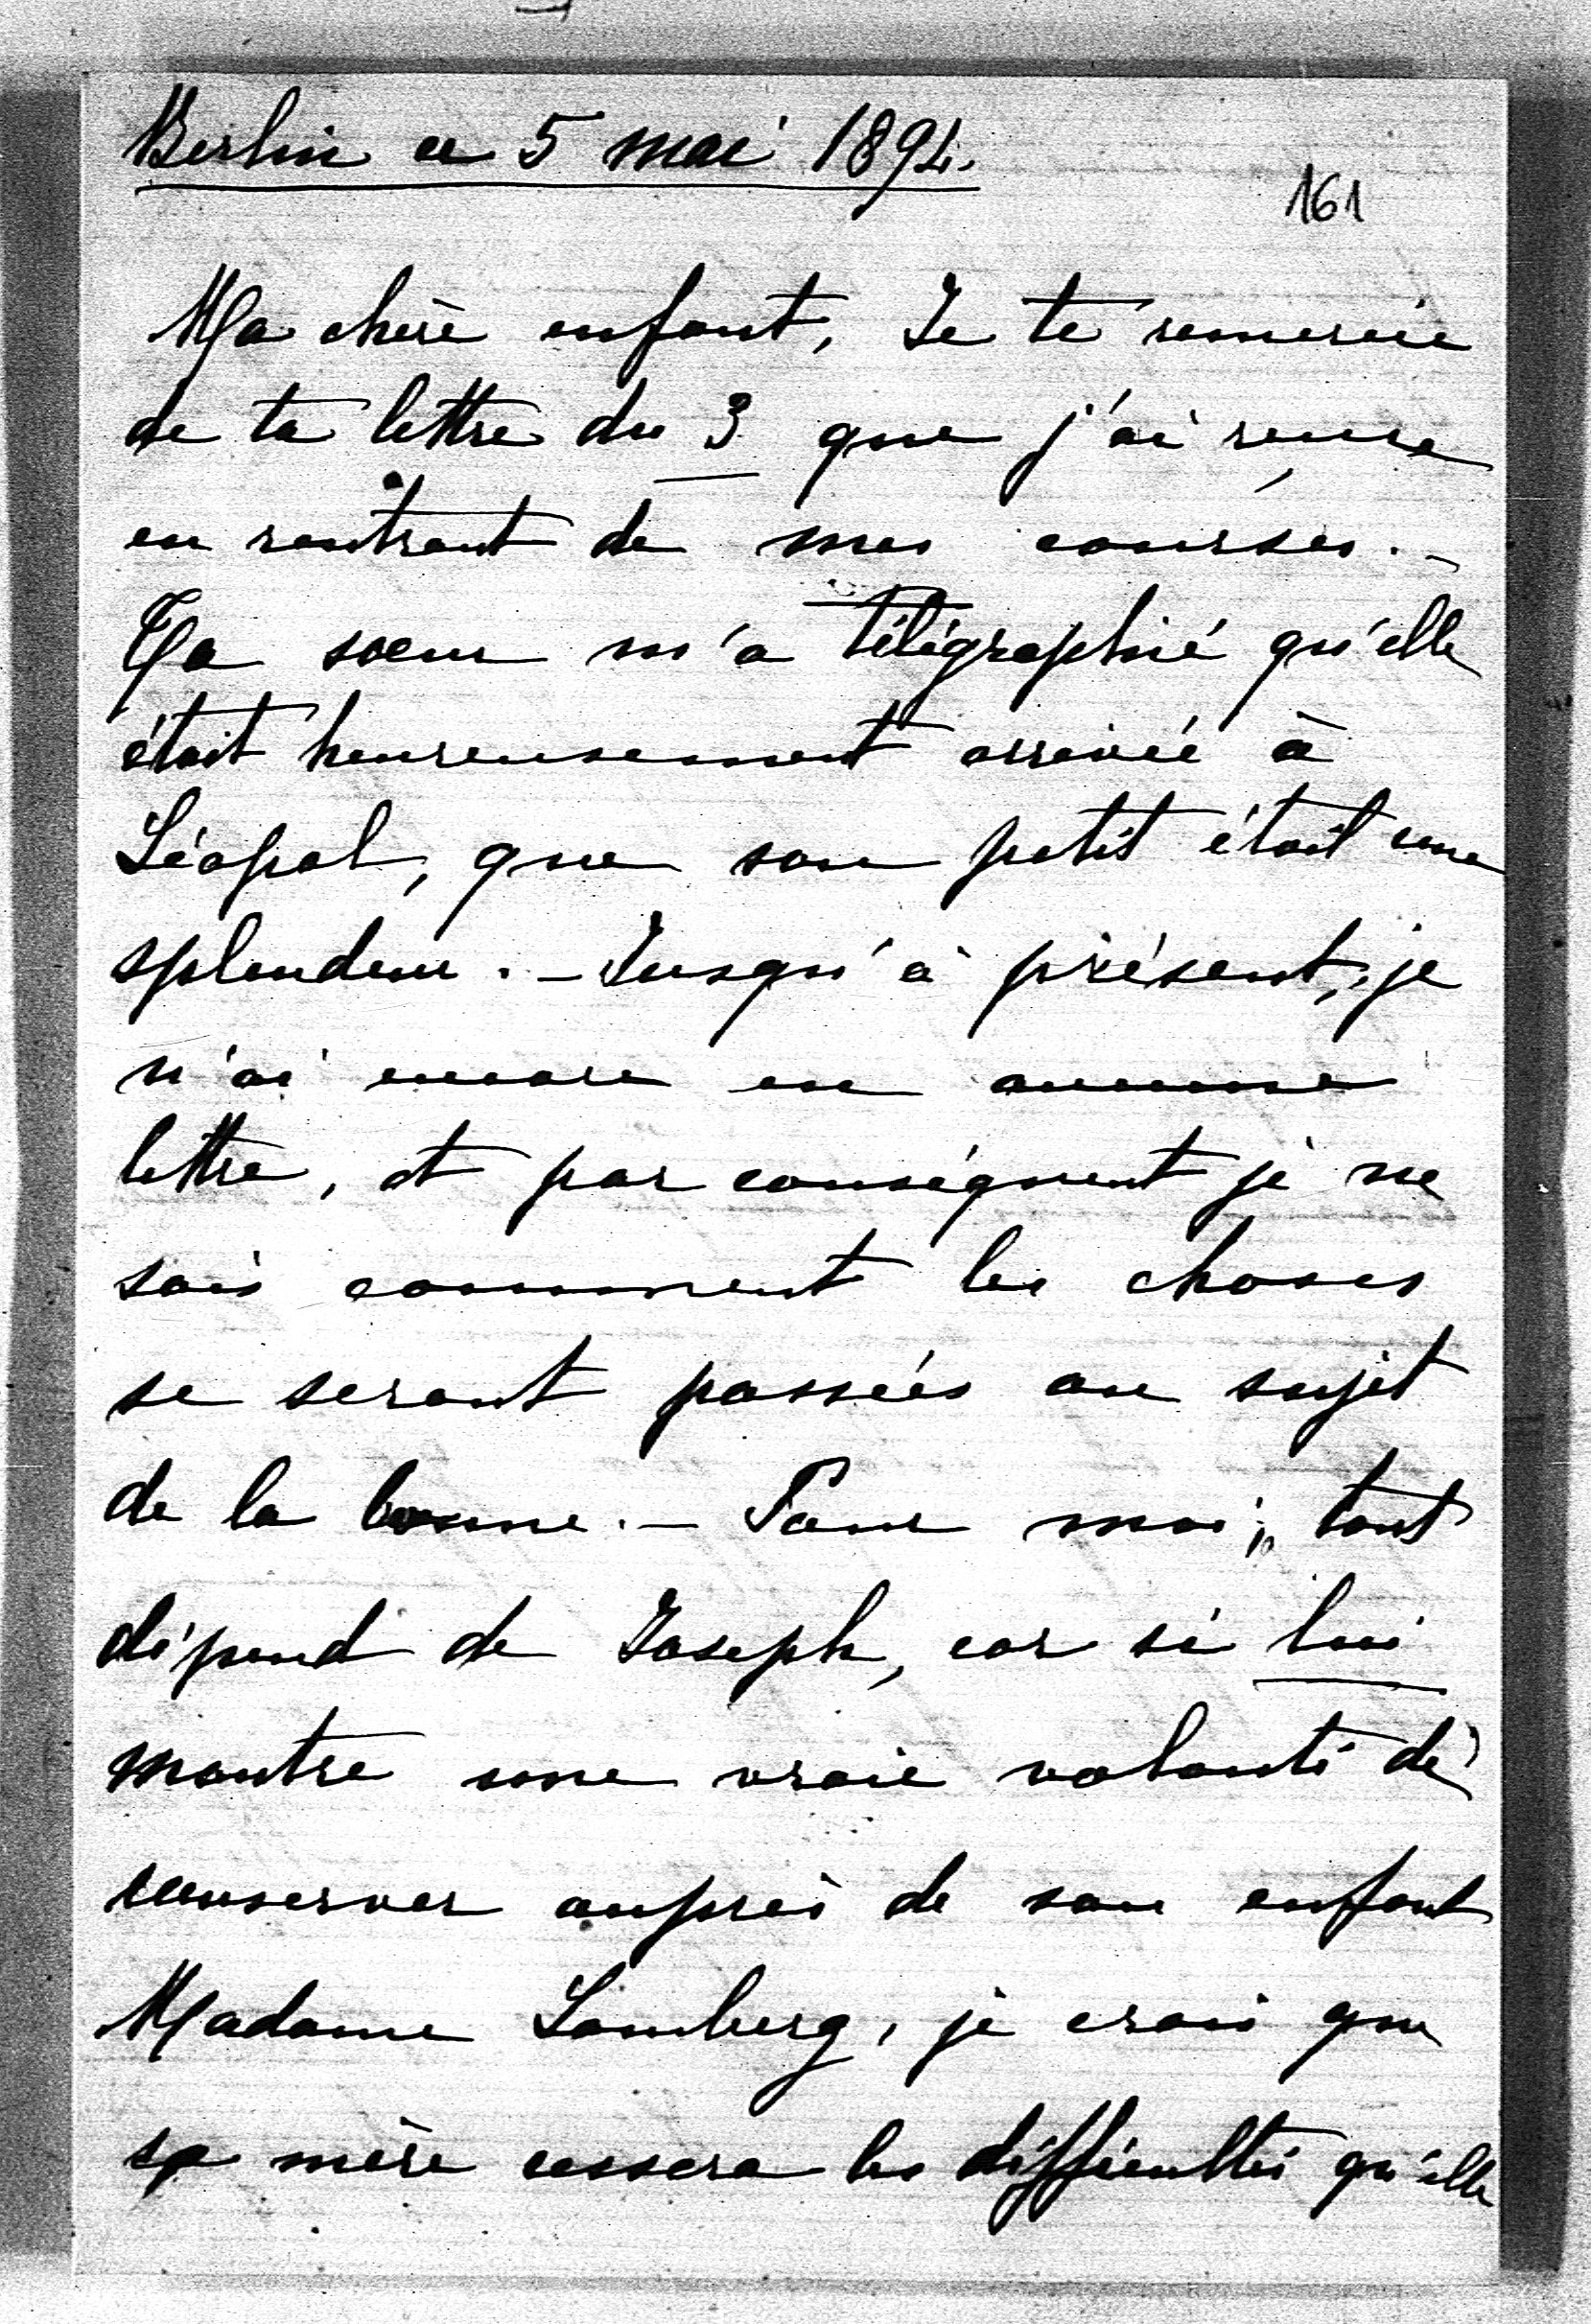 Berlin ce 5 mai 1894.
161
Ma chère enfant, Je te remercie
de ta lettre du 3 que j'ai reçue
en rentrant de mes courses. –
Ta sœur m'a télégraphié qu'elle
était heureusement arrivée à
Léopol, que son petit était une
splendeur. – Jusqu'à présent, je
n'ai encore eu aucune
lettre, et par conséquent je ne
sais comment les choses
se seront passées au sujet
de la bonne. – Pour moi, tout
dépend de Joseph, car si lui
montre une vraie volonté de
conserver auprès de son enfant
Madame Lamberg, je crois que
sa mère cessera les difficultés qu'elle